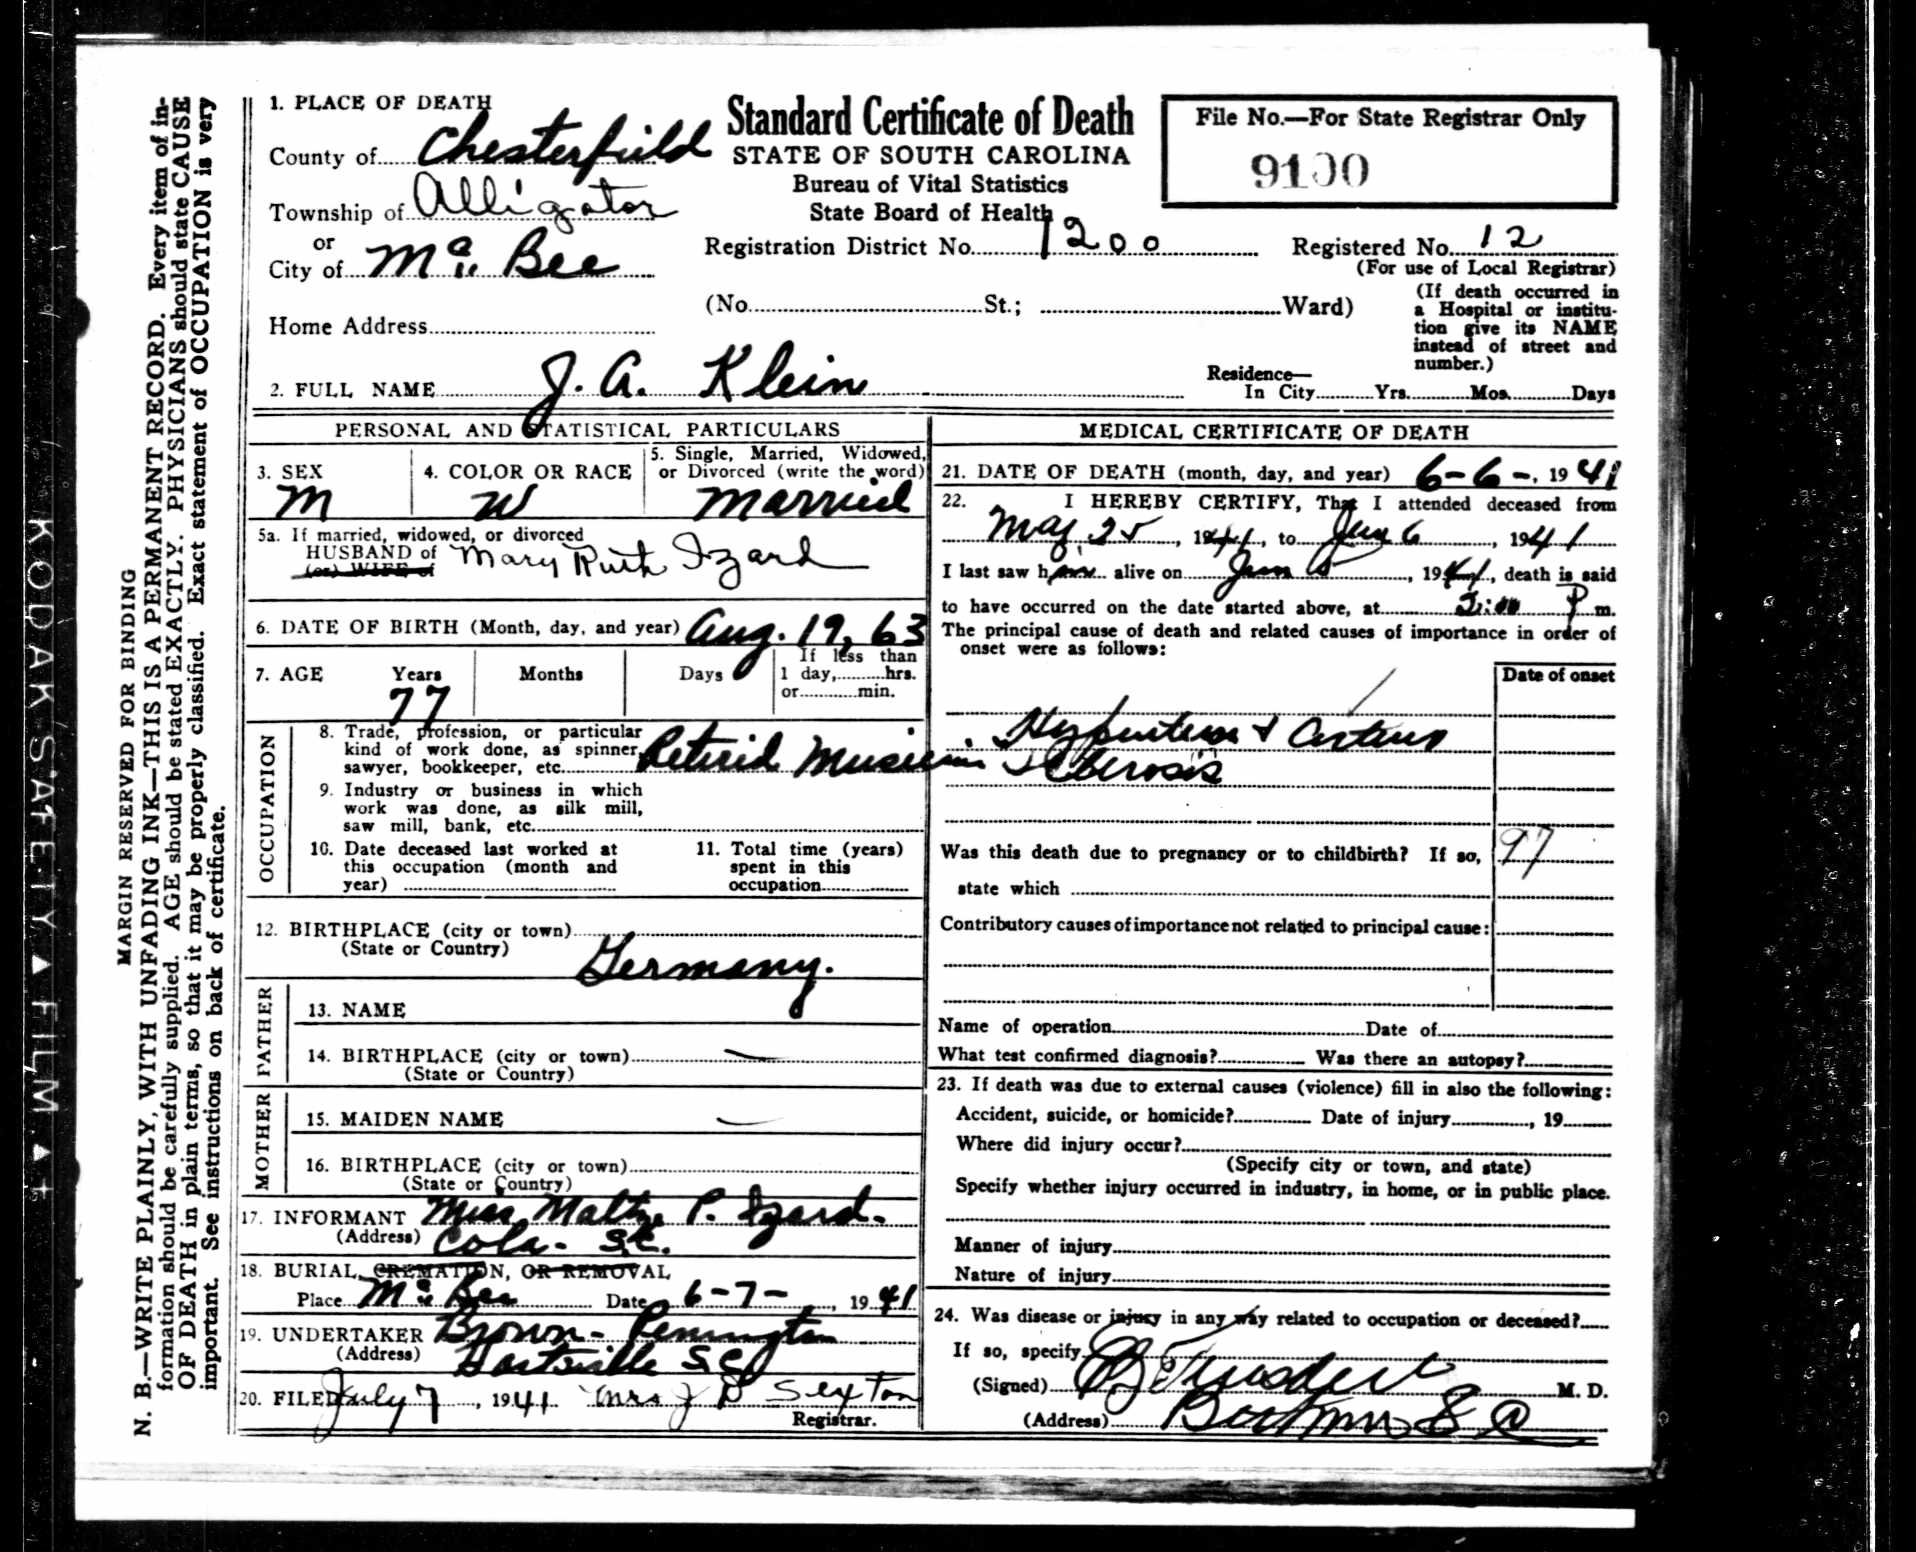 1. PLACE OF DEATH
County of Chesterfield
Township of Alligator
or
City of Mc Bee
Home Address
Standard Certificate of Death
STATE OF SOUTH CAROLINA
Bureau of Vital Statistics
State Board of Health
Registration District No. 1200
(No. St.; Ward)
File No.—For State Registrar Only
9100
Registered No. 12
(For use of Local Registrar)
(If death occurred in
a Hospital or institu-
tion give its NAME
instead of street and
number.)
2. FULL NAME J. A. Klein
Residence—
In City Yrs. Mos. Days
PERSONAL AND STATISTICAL PARTICULARS
3. SEX
M
4. COLOR OR RACE
W
5. Single, Married, Widowed,
or Divorced (write the word)
Married
5a. If married, widowed, or divorced
HUSBAND of Mary Ruth Izard
(or) WIFE of
6. DATE OF BIRTH (Month, day, and year) Aug. 19, 63
7. AGE Years Months Days
77
If less than
1 day, hrs.
or min.
OCCUPATION
8. Trade, profession, or particular
kind of work done, as spinner,
sawyer, bookkeeper, etc. Retired Musician
9. Industry or business in which
work was done, as silk mill,
saw mill, bank, etc.
10. Date deceased last worked at
this occupation (month and
year)
11. Total time (years)
spent in this
occupation
12. BIRTHPLACE (city or town)
(State or Country) Germany.
FATHER
13. NAME
14. BIRTHPLACE (city or town) —
(State or Country)
MOTHER
15. MAIDEN NAME —
16. BIRTHPLACE (city or town)
(State or Country)
17. INFORMANT Miss P. Izard.
(Address) Cola. S.C.
18. BURIAL, CREMATION, OR REMOVAL
Place Mc Bee Date 6-7-, 1941
19. UNDERTAKER Brown-Pennington
(Address) Hartsville S.C.
20. FILED July 7, 1941 Mrs J P Sexton
Registrar.
MEDICAL CERTIFICATE OF DEATH
21. DATE OF DEATH (month, day, and year) 6-6-, 1941
22. I HEREBY CERTIFY, That I attended deceased from
May 25, 1941, to Jun 6, 1941
I last saw him alive on Jun 5, 1941, death is said
to have occurred on the date started above, at 2:00 P m.
The principal cause of death and related causes of importance in order of
onset were as follows:
Date of onset
Hypertension & Arterio
Sclerosis
Was this death due to pregnancy or to childbirth? If so, 97
state which
Contributory causes of importance not related to principal cause:
Name of operation Date of
What test confirmed diagnosis? Was there an autopsy?
23. If death was due to external causes (violence) fill in also the following:
Accident, suicide, or homicide? Date of injury, 19
Where did injury occur?
(Specify city or town, and state)
Specify whether injury occurred in industry, in home, or in public place.
Manner of injury
Nature of injury
24. Was disease or injury in any way related to occupation or deceased?
If so, specify
(Signed) M. D.
(Address) S C
MARGIN RESERVED FOR BINDING
N. B.—WRITE PLAINLY, WITH UNFADING INK—THIS IS A PERMANENT RECORD. Every item of in-
formation should be carefully supplied. AGE should be stated EXACTLY. PHYSICIANS should state CAUSE
OF DEATH in plain terms, so that it may be properly classified. Exact statement of OCCUPATION is very
important. See instructions on back of certificate.
KODAK SAFETY FILM